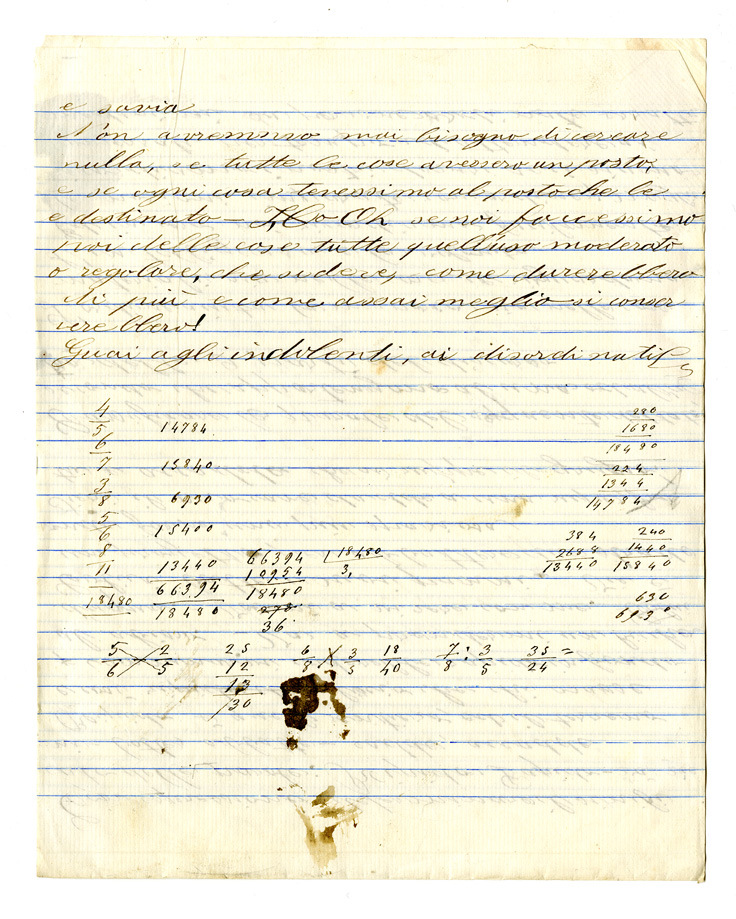 e savia
Non avremmo mai bisogno di cercare
nulla, se tutte le cose avessero un posto;
e se ogni cosa tenessimo al posto che le
e destinato — Oh se noi facessimo
poi delle cose tutte quell'uso moderato
o regolare, che si deve, come durerebbero
di più e come assai meglio si conser
verebbero!
Guai agli indolenti, ai disordinati
4/5 14784
6/7 15840
3/8 6930
5/6 15400
8/11 13440
18480 66394
18480
66394 | 18480
10954 3,
18480
36
280
1680
18480
224
1344
14784
384
2688
13440
240
1440
15840
630
6930
5/6 × 2/5 25
12
13
30
6/8 × 3/5 18/40 7/8 : 3/5 35/24 =